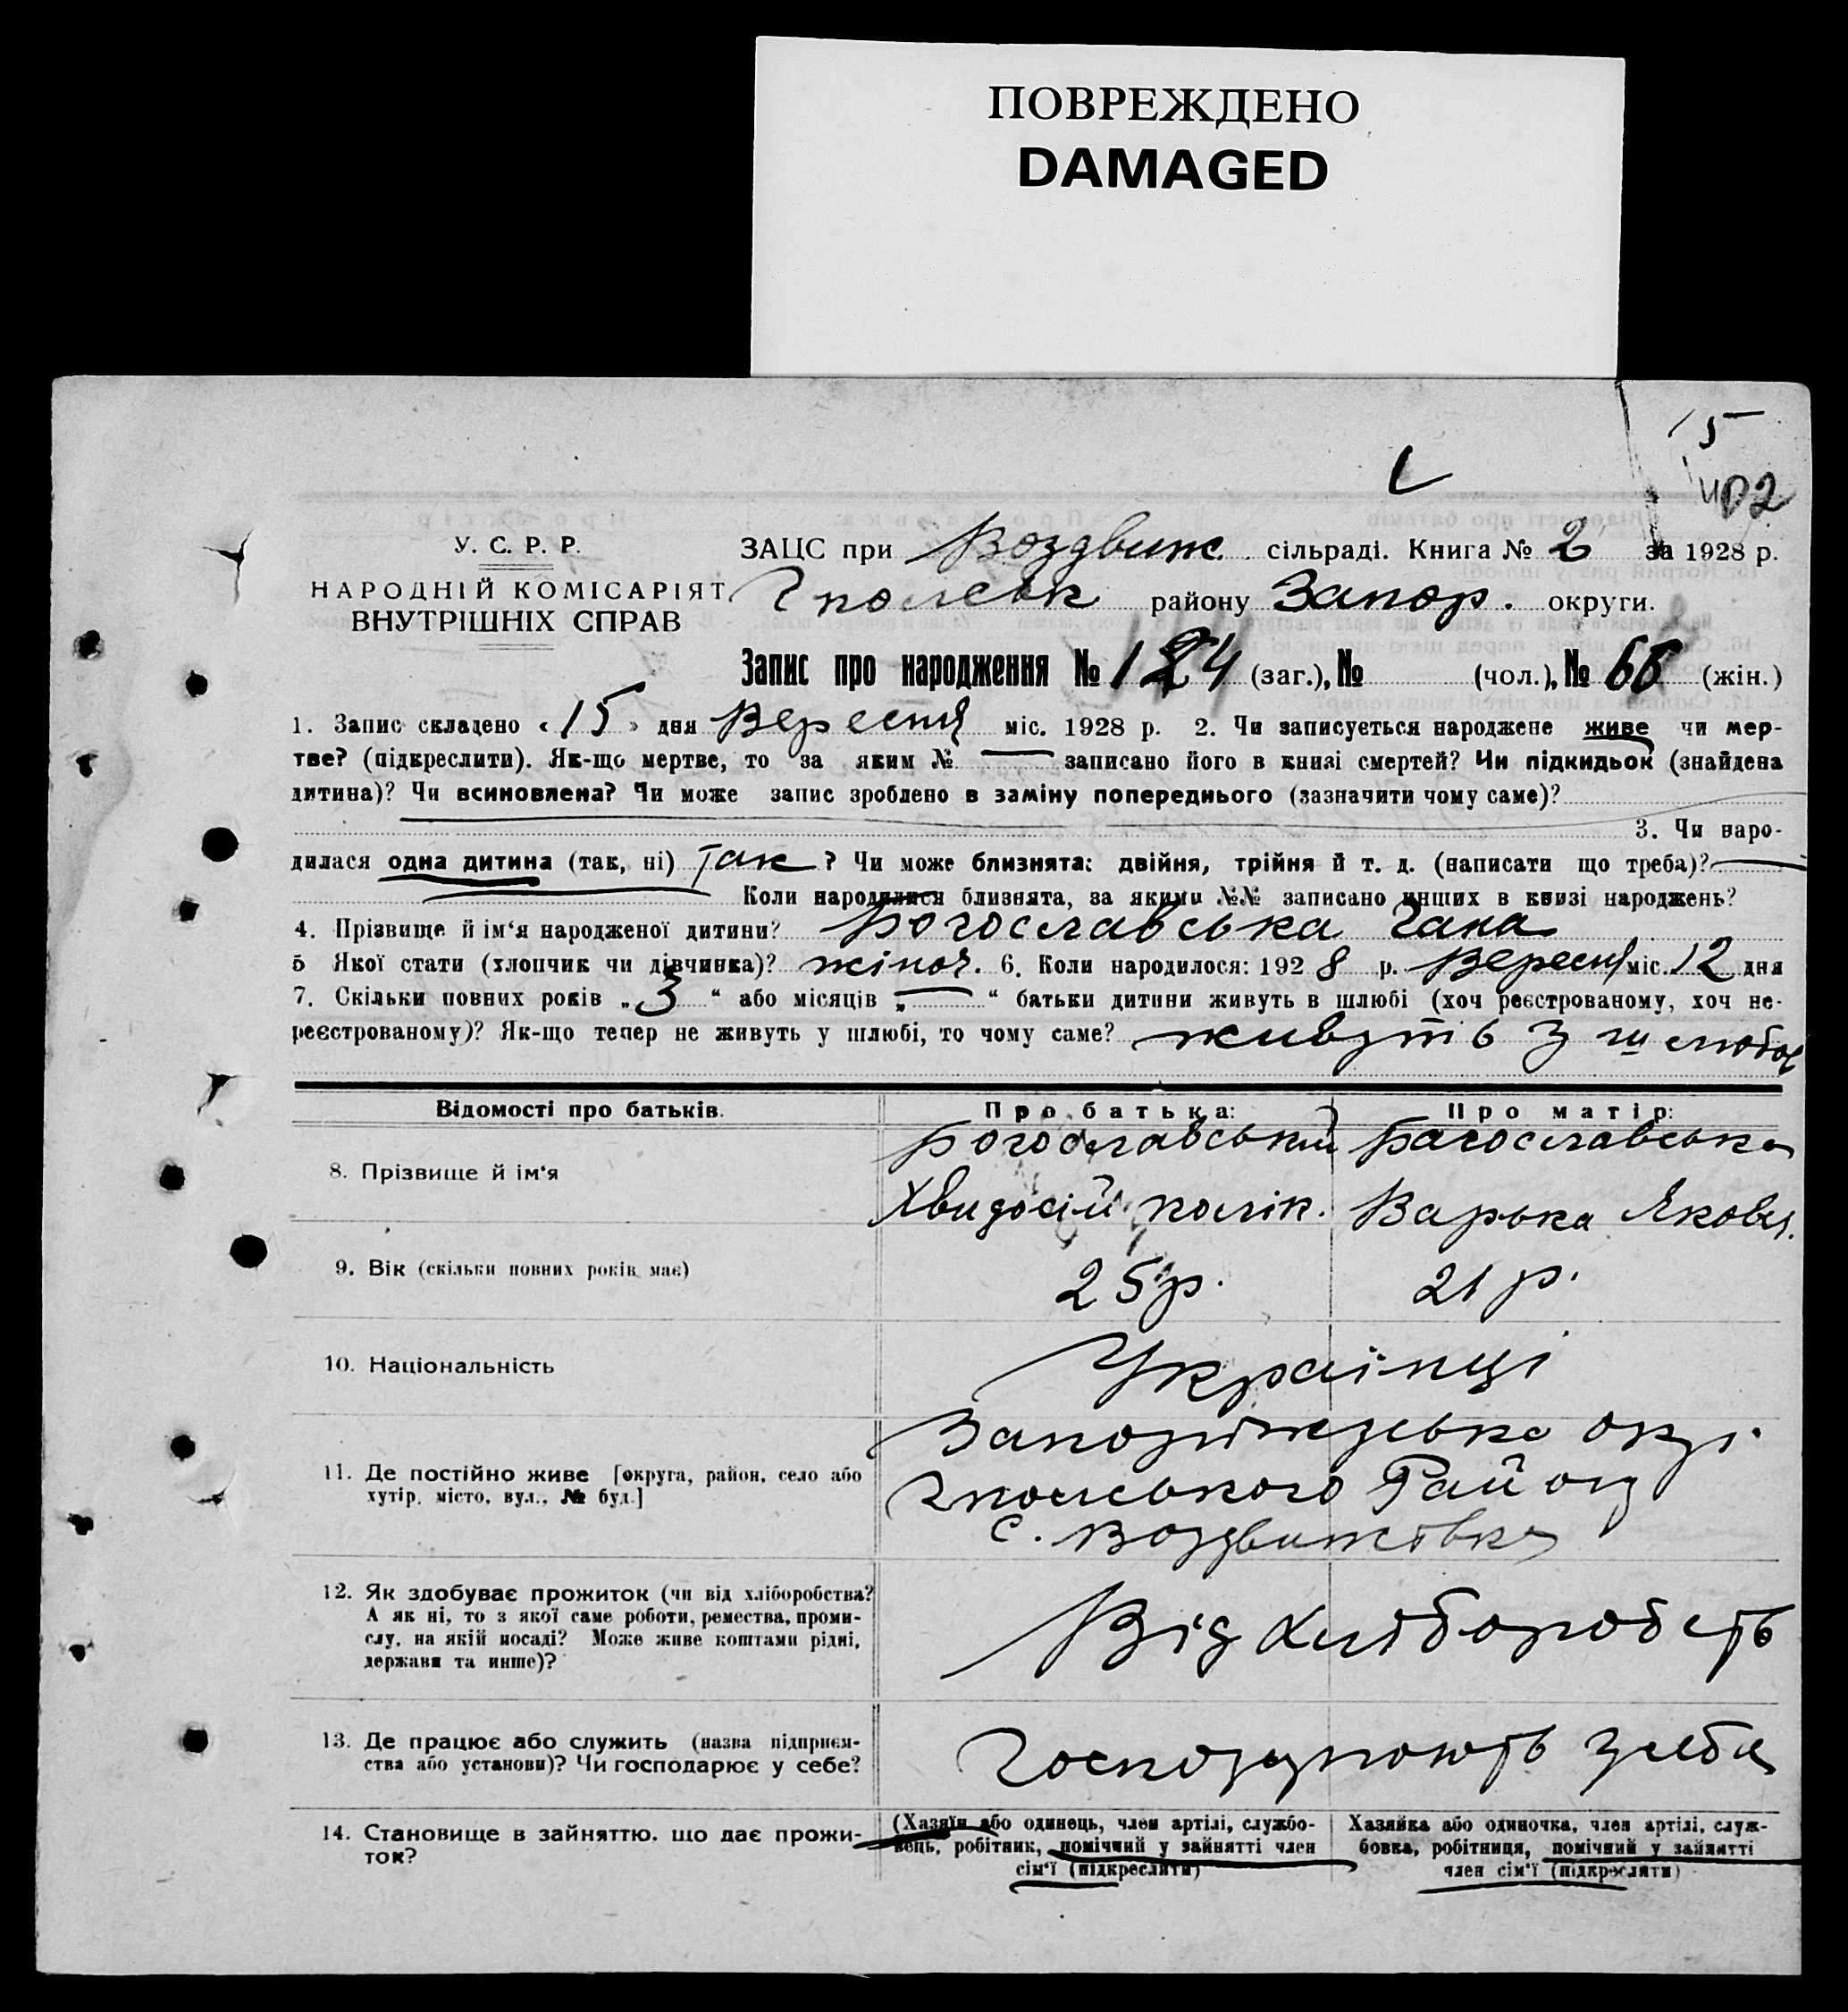 ПОВРЕЖДЕНО
DAMAGED
15
402
У. С. Р. Р.
НАРОДНІЙ КОМІСАРІЯТ
ВНУТРІШНІХ СПРАВ
ЗАЦС при Воздвиж. сільраді. Книга № 2 за 1928 р.
Гполськ району Запор. округи.
Запис про народження № 124 (заг.), № (чол.), № 66 (жін.)
1. Запис складено « 15 » дня Вересня міс. 1928 р. 2. Чи записується народжене живе чи мер-
тве? (підкреслити). Як-що мертве, то за яким № — записано його в книзі смертей? Чи підкидьок (знайдена
дитина)? Чи всиновлена? Чи може запис зроблено в заміну попереднього (зазначити чому саме)?
3. Чи наро-
дилася одна дитина (так, ні) так ? Чи може близнята: двійня, трійня й т. д. (написати що треба)? —
Коли народилися близнята, за якими №№ записано инших в книзі народжень?
4. Прізвище й ім‘я народженої дитини? Богославська Гана
5 Якої стати (хлопчик чи дівчинка)? жіноч. 6. Коли народилося: 1928 р. Вересня міс. 12 дня
7. Скільки повних років „ 3 “ або місяців „ — “ батьки дитини живуть в шлюбі (хоч реєстрованому, хоч не-
реєстрованому)? Як-що тепер не живуть у шлюбі, то чому саме? живуть з
Відомості про батьків. Про батька: Про матір:
8. Прізвище й ім‘я Богославський Багославська
Хвидосій полік. Варька Яковл.
9. Вік (скільки повних років має) 25 р. 21 р.
10. Національність Українці
11. Де постійно живе [округа, район, село або
хутір, місто, вул., № буд.]
Запоріжзька окр.
Гпольського Району
с. Воздвижівка
12. Як здобуває прожиток (чи від хліборобства?
А як ні, то з якої саме роботи, ремества, проми-
слу, на якій посаді? Може живе коштами рідні,
держави та инше)?
Від
13. Де працює або служить (назва підприєм-
ства або установи)? Чи господарює у себе?
Господарюють
14. Становище в зайняттю. що дає прожи-
ток?
(Хазяїн або одинець, член артілі, службо-
вець, робітник, помічний у зайнятті член
сім‘ї (підкреслити)
Хазяйка або одиночка, член артілі, служ-
бовка, робітниця, помічний у зайнятті
член сім‘ї (підкреслити)